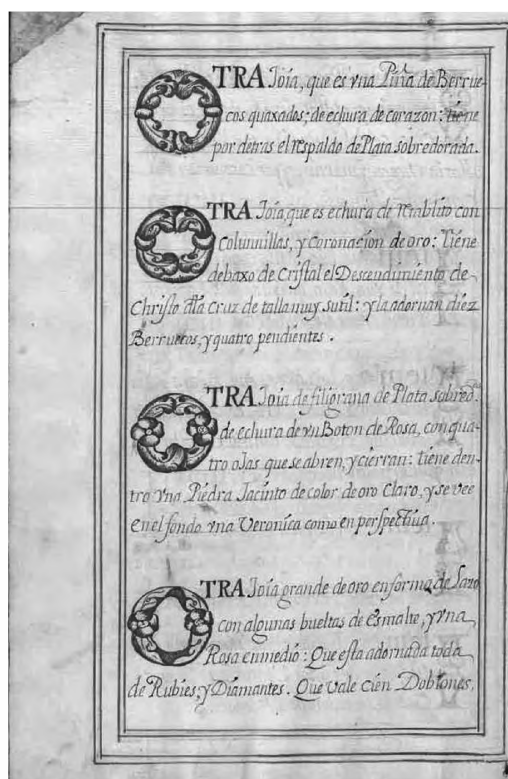 OTRA Joía, que es vna Piña de Berrue-
cos quaxados; de echura de corazon: tiene
por detras el respaldo de Plata sobredorada.
OTRA Joía, que es echura de retablito con
Colunnillas, y Coronacion de oro: Tiene
debaxo de Cristal el Descendimiento de
Christo dla Cruz de talla muy sutil: y la adornan diez
Berruecos, y quatro pendientes.
OTRA Joía de filigrana de Plata sobred.ª
de echura de vn Boton de Rosa, con qua-
tro ojas que se abren, y cierran: tiene den-
tro vna Piedra Jacinto de color de oro Claro, y se vee
en el fondo vna Veronica como en perspectiua.
OTRA Joía grande de oro en forma de Lazo
con algunas bueltas de Esmalte, y vna
Rosa en medio: Que esta adornada toda
de Rubies; y Diamantes. Que vale Cien Doblones.